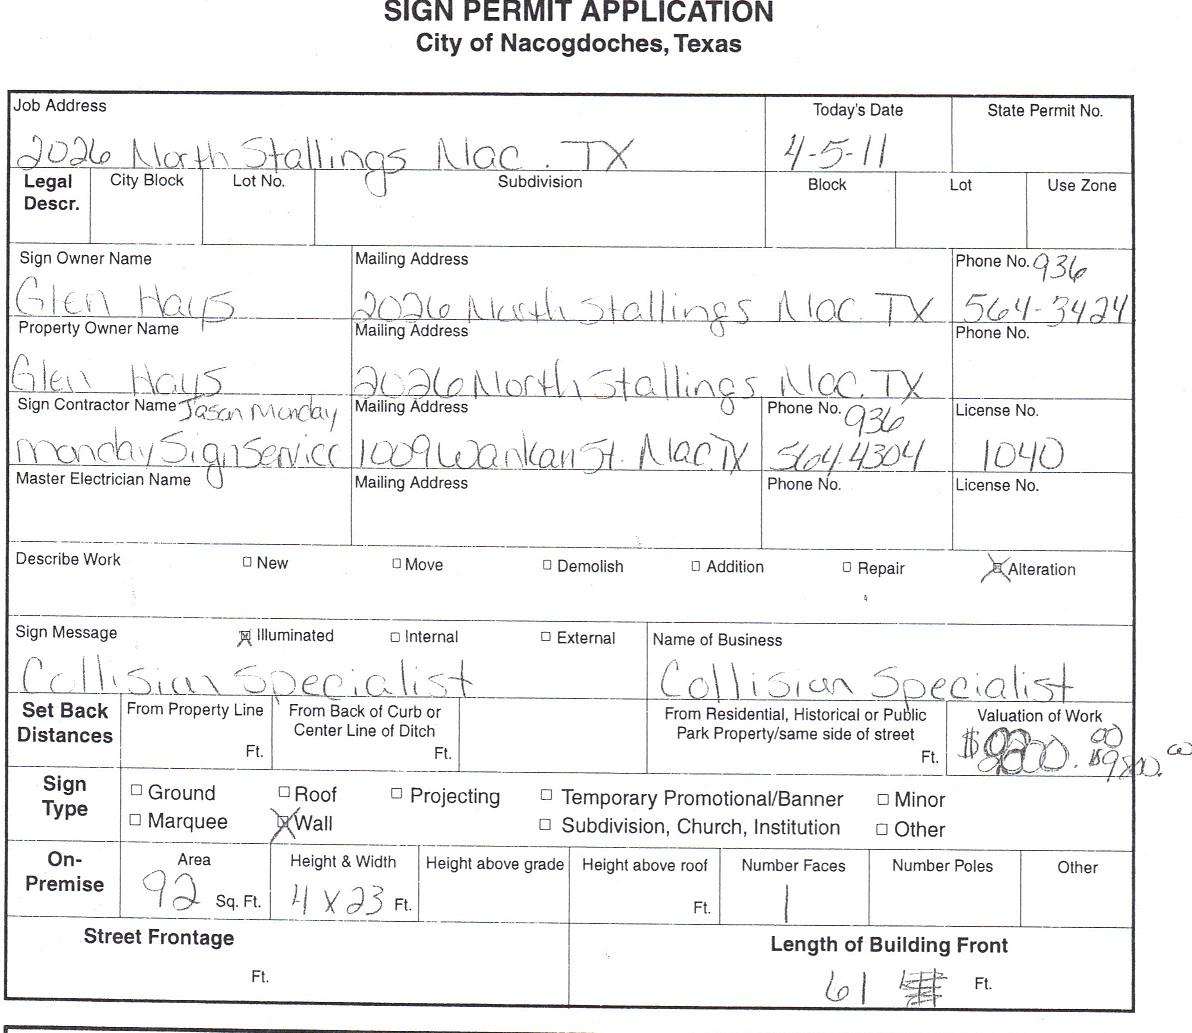 SIGN PERMIT APPLICATION
City of Nacogdoches, Texas
Job Address Today's Date State Permit No.
2026 North Stallings Nac. TX 4-5-11
Legal Descr. City Block Lot No. Subdivision Block Lot Use Zone
Sign Owner Name Mailing Address Phone No. 936
Glen Hays 2026 North Stallings Nac. TX 564-3424
Property Owner Name Mailing Address Phone No.
Glen Hays 2026 North Stallings Nac. TX
Sign Contractor Name Jason Monday Mailing Address Phone No. 936 License No.
Monday Sign Service 1009 Wankan St. Nac. TX 564-4304 1040
Master Electrician Name Mailing Address Phone No. License No.
Describe Work New Move Demolish Addition Repair Alteration
Sign Message Illuminated Internal External Name of Business
Collision Specialist Collision Specialist
Set Back Distances From Property Line Ft. From Back of Curb or Center Line of Ditch Ft. From Residential, Historical or Public Park Property/same side of street Ft. Valuation of Work
Sign Type Ground Roof Projecting Temporary Promotional/Banner Minor
Marquee Wall Subdivision, Church, Institution Other
On-Premise Area Height & Width Height above grade Height above roof Number Faces Number Poles Other
92 Sq. Ft. 4 x 23 Ft. Ft. 1
Street Frontage Length of Building Front
Ft. 61 Ft.